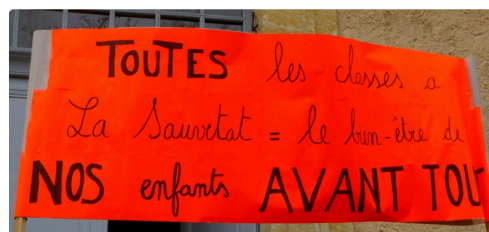 TOUTES les classes à
La Sauvetat = le bien-être de
NOS enfants AVANT TOUT